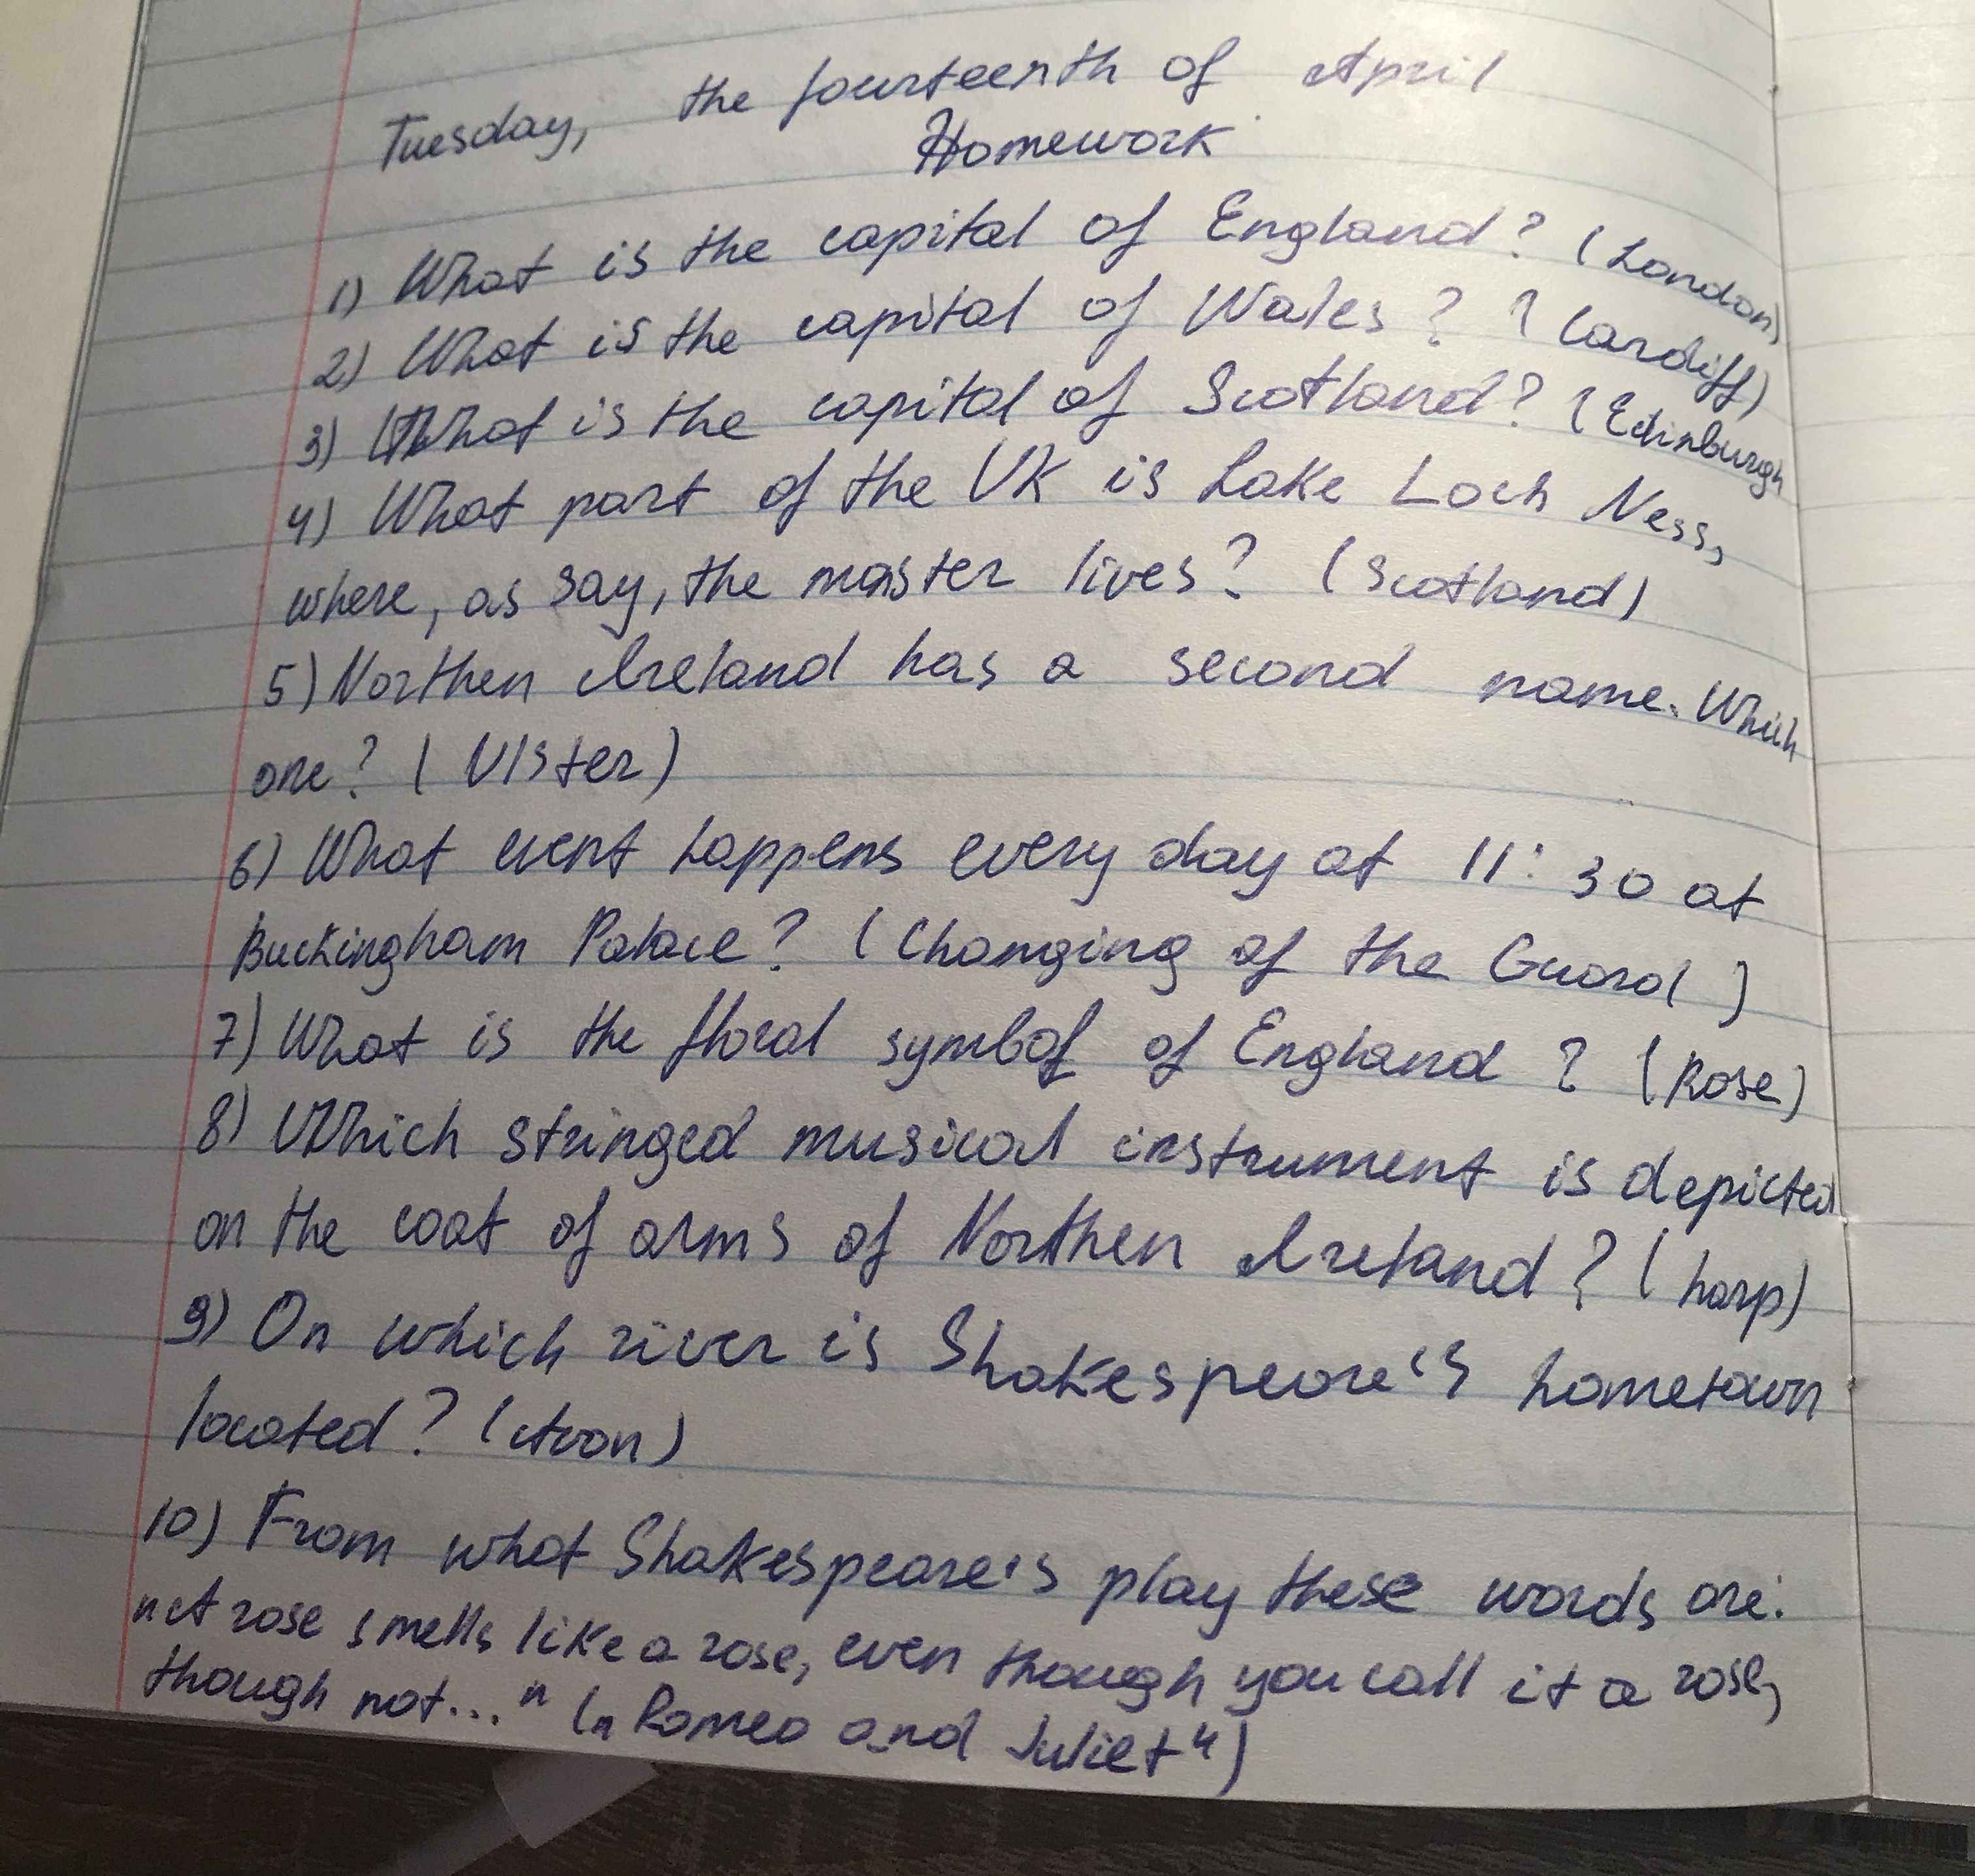 Tuesday, the fourteenth of April
Homework
1) What is the capital of England? (London)
2) What is the capital of Wales? (Cardiff)
3) What is the capital of Scotland? (Edinburgh
4) What part of the UK is Lake Loch Ness,
where, as say, the master lives? (Scotland)
5) Northen Ireland has a second name. Which
one? (Ulster)
6) What event happens every day at 11:30 at
Buckingham Palace? (Changing of the Guard)
7) What is the floral symbol of England? (Rose)
8) Which stringed musical instrument is depicted
on the coat of arms of Northen Ireland? (harp)
9) On which river is Shakespeare's hometown
located? (Avon)
10) From what Shakespeare's play these words are:
"A rose smells like a rose, even though you call it a rose,
though not..." („Romeo and Juliet")